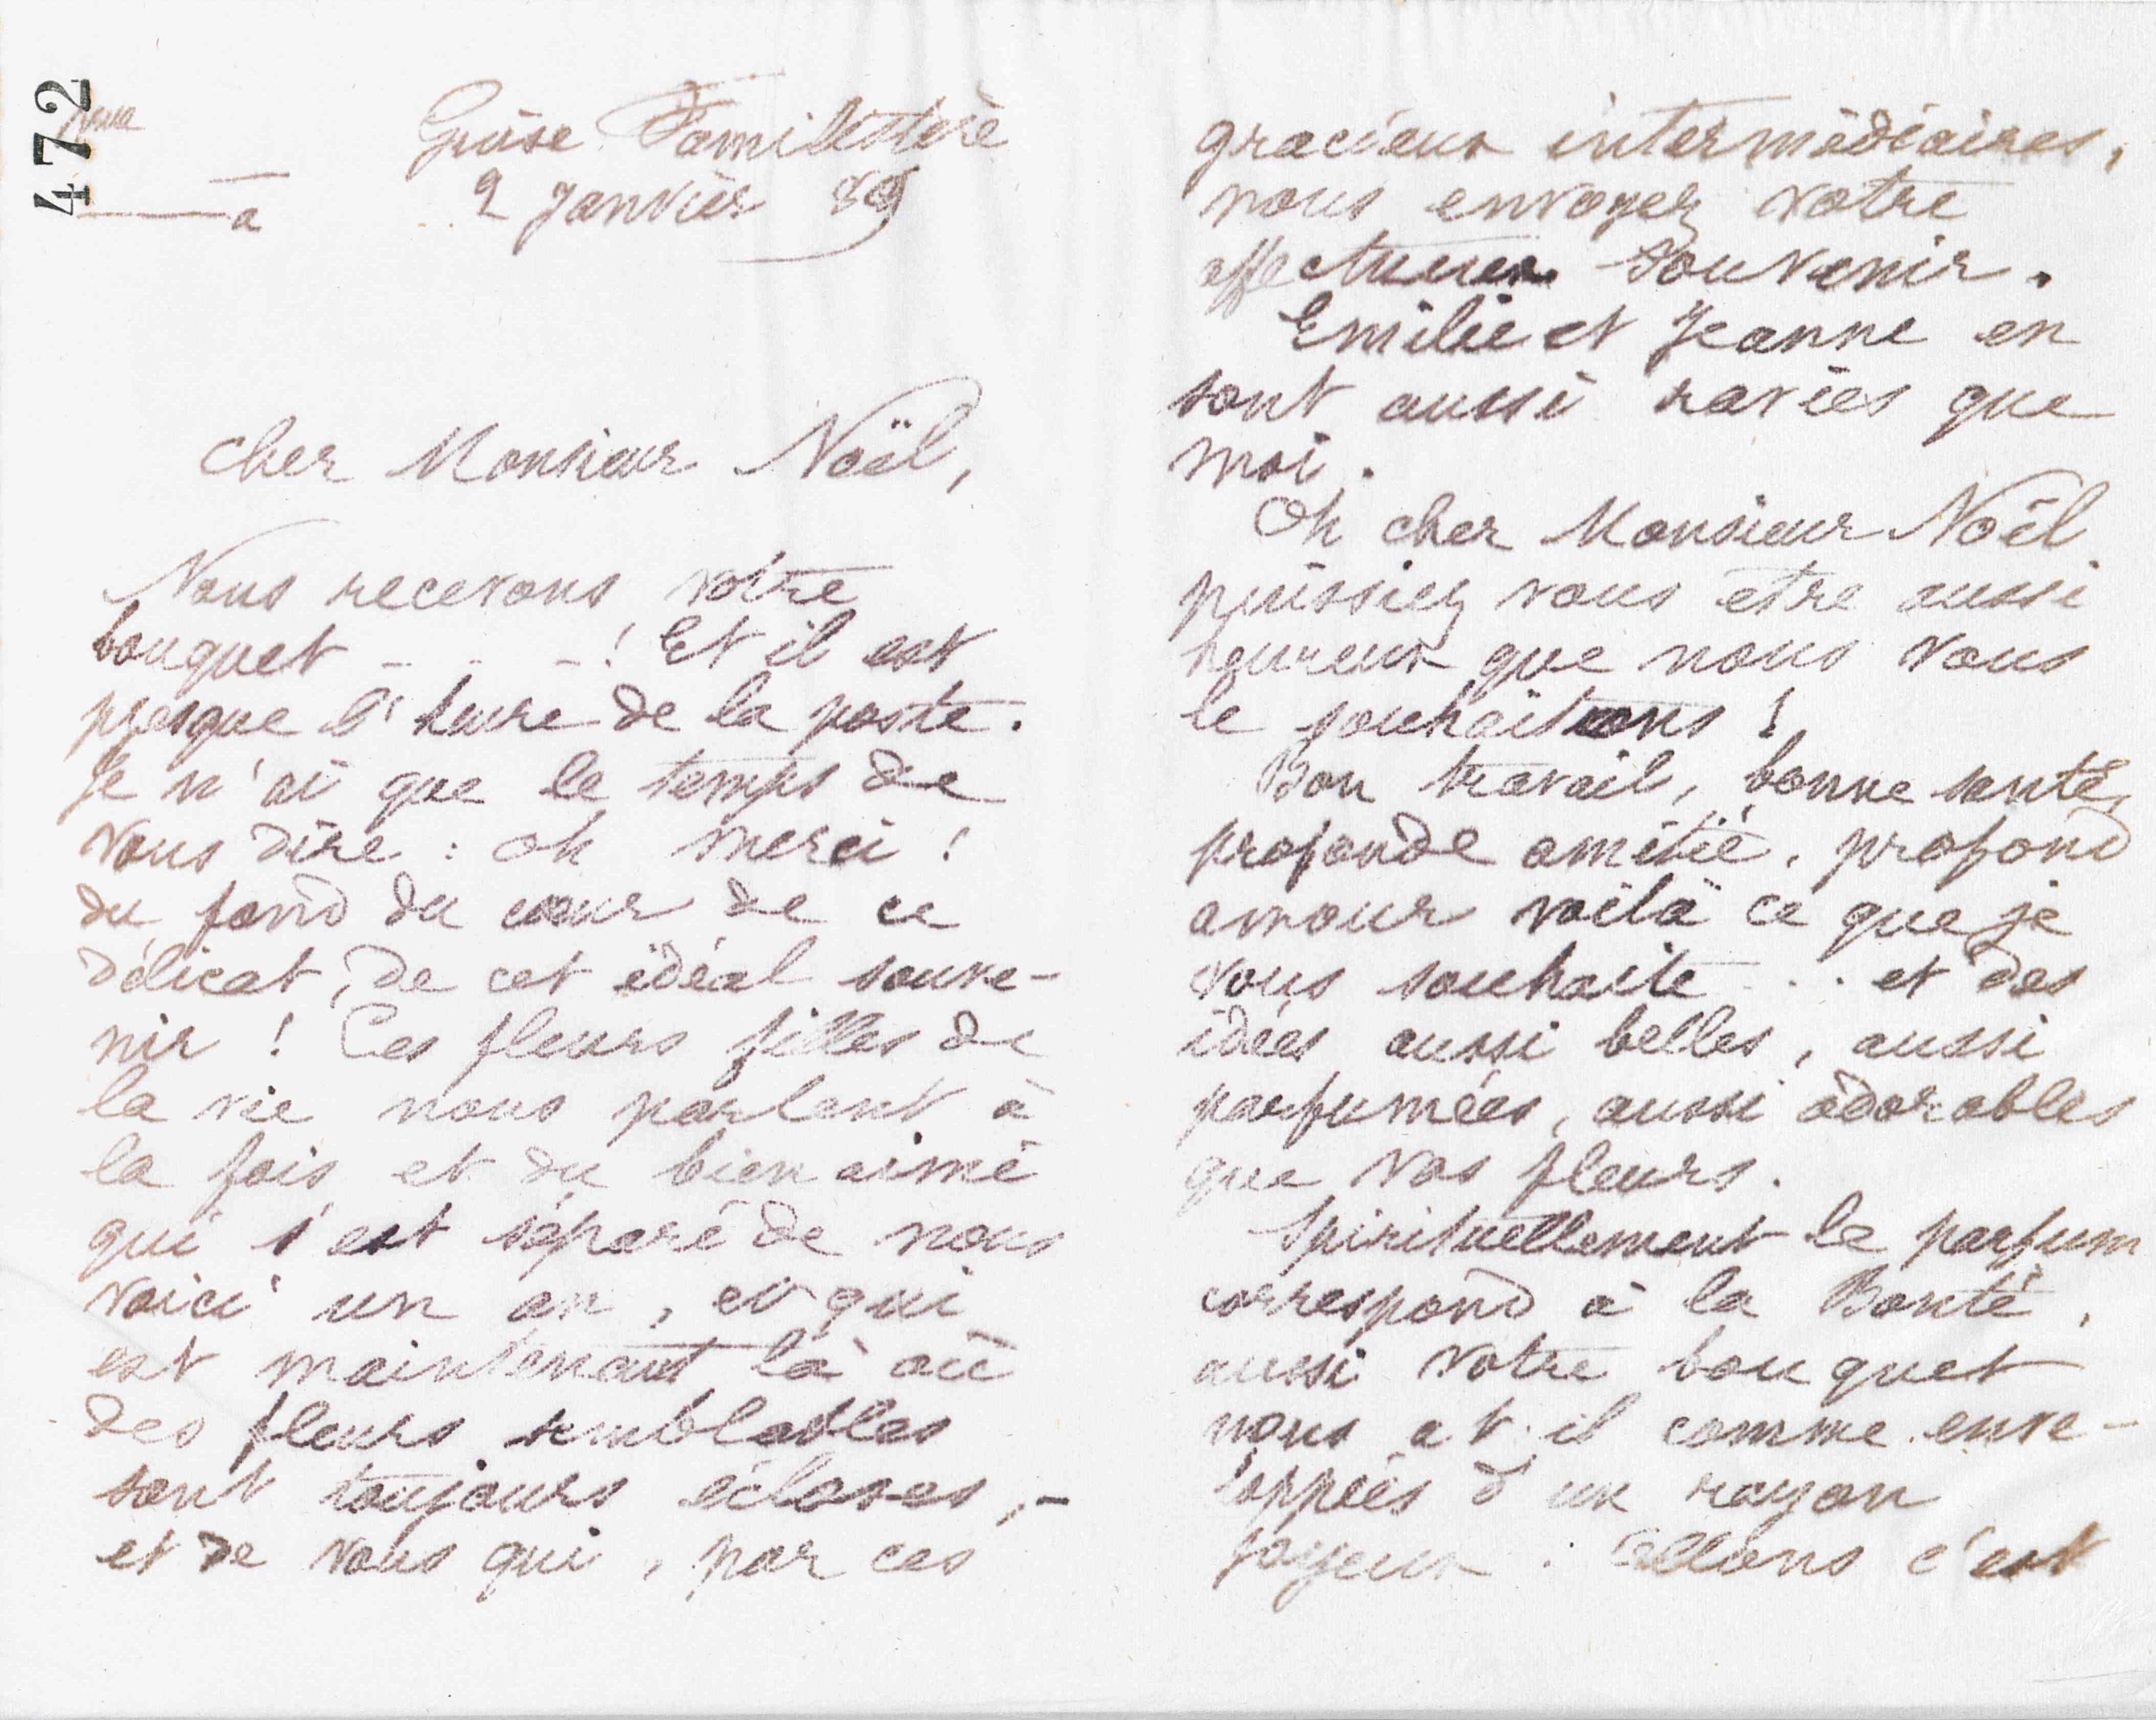 472
Guise Familistère
2 Janvier 89
a
Cher Monsieur Noël,
Nous recevons votre
bouquet - - - ! Et il est
presque l'heure de la poste.
Je n'ai que le temps de
vous dire : oh merci !
du fond du cœur de ce
délicat, de cet idéal souve-
nir ! Ces fleurs filles de
la vie nous parlent à
la fois et du bien aimé
qui s'est séparé de nous
voici un an, et qui
est maintenant là où
des fleurs semblables
sont toujours écloses, -
et de vous qui, par ces
gracieux intermédiaires,
nous envoyez votre
affectueux souvenir.
Emilie et Jeanne en
sont aussi ravies que
moi.
Oh cher Monsieur Noël
puissiez vous être aussi
heureux que nous vous
le souhaitons !
Bon travail, bonne santé,
profonde amitié, profond
amour voilà ce que je
vous souhaite . . . et des
idées aussi belles, aussi
parfumées, aussi adorables
que vos fleurs.
Spirituellement le parfum
correspond à la Bonté,
aussi votre bouquet
nous a t-il comme enve-
loppées d'un rayon
joyeux. Allons c'est